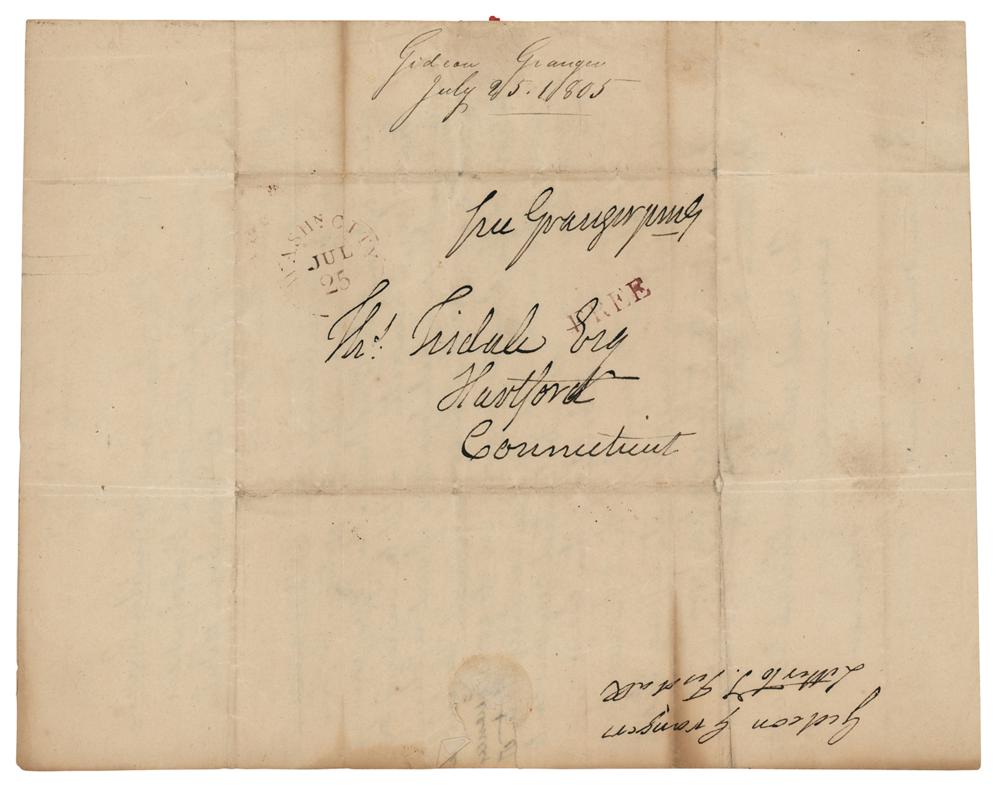 Gideon Granger
July 25. 1805
free Granger pmG
WASHN CITY
JUL
25
FREE
Ths. Tisdale Esq
Hartford
Connecticut
Gideon Granger
Letter to T. Tisdale